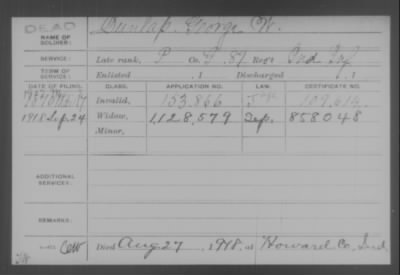 DEAD
NAME OF SOLDIER: Dunlap, George W.
SERVICE: Late rank, P Co. G. 87 Reg't Ind Inf
TERM OF SERVICE: Enlisted , 1 Discharged , 1
DATE OF FILING. CLASS. APPLICATION NO. LAW. CERTIFICATE NO.
Invalid, 153,866 109,614
1918 Sep. 24 Widow, 1,128,579 Sep. 858048
Minor,
ADDITIONAL SERVICES:
REMARKS:
Died Aug 27, 1918, at Howard Co, Ind